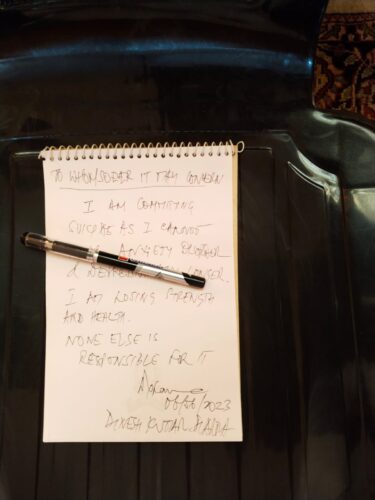 TO WHOMSOEVER IT MAY CONCERN
I AM COMMITTING
SUICIDE AS I CANNOT
ANXIETY
&
I AM LOSING STRENGTH
AND HEALTH.
NONE ELSE IS
RESPONSIBLE FOR IT
06/06/2023
DINESH KUMAR